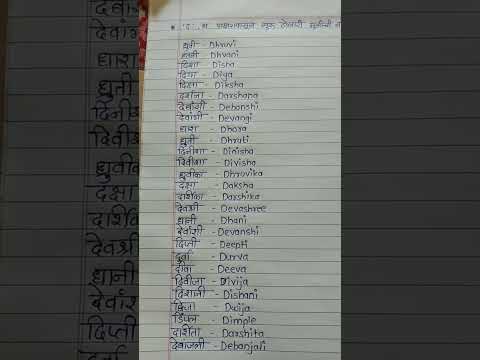 'द' होणारी मुलींची
ध्रुवी - Dhruvi
ध्वनी - Dhvani
दिशा - Disha
दिया - Diya
दिक्षा - Diksha
दर्शना - Darshana
देबांशी - Debanshi
देवांगी - Devangi
धारा - Dhara
धृती - Dhruti
दिनीशा - Dinisha
दिवीशा - Divisha
ध्रुवीका - Dhruvika
दक्षा - Daksha
दार्शिका - Darshika
देवश्री - Devashree
धानी - Dhani
देवांशी - Devanshi
दिप्ती - Deepti
दुर्वा - Durva
दीवा - Deeva
दिवीजा - Divija
दिशानी - Dishani
द्विजा - Dwija
डिंपल - Dimple
दर्शिता - Darshita
देबांजली - Debanjali